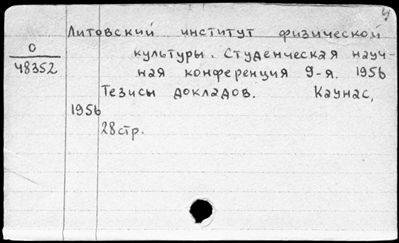 Литовский институт физической
О
48352
культуры. Студенческая науч-
ная конференция 9-я. 1956
Тезисы докладов. Каунас,
1956
28стр.